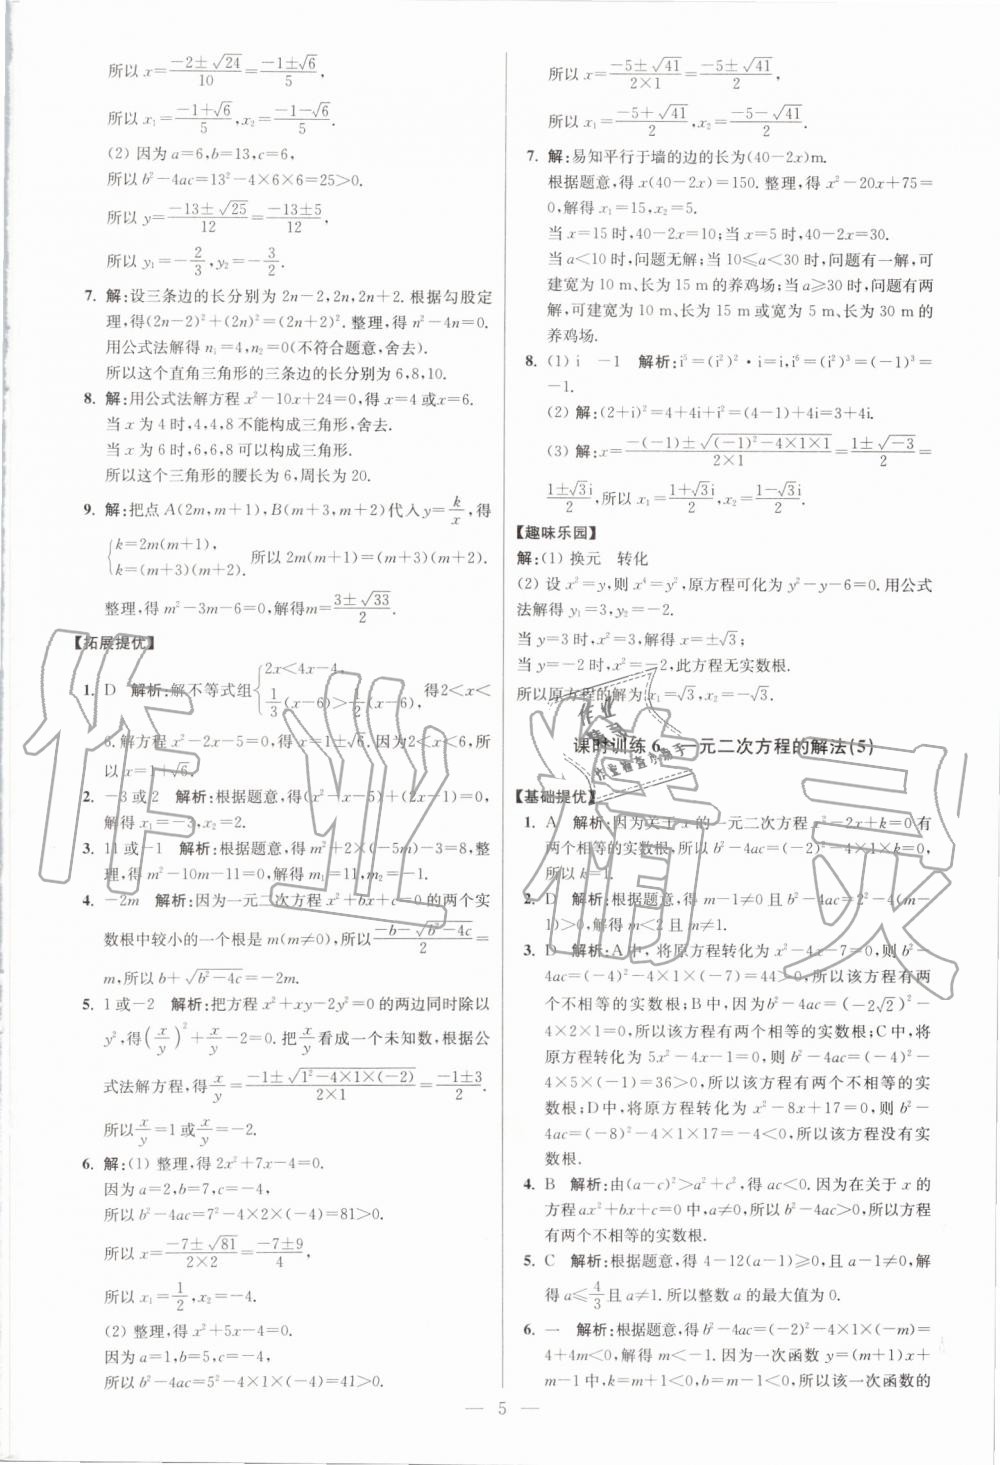 所以 x=(-2±√24)/10=(-1±√6)/5,
所以 x₁=(-1+√6)/5,x₂=(-1-√6)/5.
(2) 因为 a=6,b=13,c=6,
所以 b²-4ac=13²-4×6×6=25>0.
所以 y=(-13±√25)/12=(-13±5)/12,
所以 y₁=-2/3,y₂=-3/2.
7. 解:设三条边的长分别为 2n-2,2n,2n+2.根据勾股定
理,得(2n-2)²+(2n)²=(2n+2)².整理,得 n²-4n=0.
用公式法解得 n₁=4,n₂=0(不符合题意,舍去).
所以这个直角三角形的三条边的长分别为 6,8,10.
8. 解:用公式法解方程 x²-10x+24=0,得 x=4 或x=6.
当 x 为 4 时,4,4,8 不能构成三角形,舍去.
当 x 为 6 时,6,6,8 可以构成三角形.
所以这个三角形的腰长为 6,周长为 20.
9. 解:把点 A(2m,m+1),B(m+3,m+2)代入 y=k/x,得
{k=2m(m+1),
k=(m+3)(m+2). 所以 2m(m+1)=(m+3)(m+2).
整理,得 m²-3m-6=0,解得m=(3±√33)/2.
【拓展提优】
1. D 解析:解不等式组{2x<4x-4,
1/3(x-6)>1/2(x-6), 得2<x<
6.解方程 x²-2x-5=0,得 x=1±√6.因为2<x<6,所
以 x=1+√6.
2. -3或2 解析:根据题意,得(x²-x-5)+(2x-1)=0,
解得 x₁=-3,x₂=2.
3. 11或-1 解析:根据题意,得 m²+2×(-5m)-3=8,整
理,得 m²-10m-11=0,解得 m₁=11,m₂=-1.
4. -2m 解析:因为一元二次方程 x²+bx+c=0 的两个实
数根中较小的一个根是 m(m≠0),所以(-b-√(b²-4c))/2=
m,所以 b+√(b²-4c)=-2m.
5. 1 或-2 解析:把方程 x²+xy-2y²=0 的两边同时除以
y²,得(x/y)²+x/y-2=0.把x/y看成一个未知数,根据公
式法解方程,得x/y=(-1±√(1²-4×1×(-2)))/(2×1)=(-1±3)/2.
所以x/y=1 或x/y=-2.
6. 解:(1) 整理,得 2x²+7x-4=0.
因为 a=2,b=7,c=-4,
所以 b²-4ac=7²-4×2×(-4)=81>0.
所以 x=(-7±√81)/(2×2)=(-7±9)/4,
所以 x₁=1/2,x₂=-4.
(2) 整理,得 x²+5x-4=0.
因为 a=1,b=5,c=-4,
所以 b²-4ac=5²-4×1×(-4)=41>0.
所以 x=(-5±√41)/(2×1)=(-5±√41)/2,
所以 x₁=(-5+√41)/2,x₂=(-5-√41)/2.
7. 解:易知平行于墙的边的长为(40-2x)m.
根据题意,得 x(40-2x)=150. 整理,得 x²-20x+75=
0,解得 x₁=15,x₂=5.
当 x=15 时,40-2x=10;当 x=5 时,40-2x=30.
当 a<10 时,问题无解;当 10≤a<30 时,问题有一解,可
建宽为 10 m、长为 15 m 的养鸡场;当 a≥30 时,问题有两
解,可建宽为 10 m、长为 15 m 或宽为 5 m、长为 30 m 的
养鸡场.
8. (1) i -1 解析:i⁵=(i²)²·i=i,i⁶=(i²)³=(-1)³=
-1.
(2) 解:(2+i)²=4+4i+i²=(4-1)+4i=3+4i.
(3) 解:x=(-(-1)±√((-1)²-4×1×1))/(2×1)=(1±√-3)/2=
(1±√3i)/2,所以 x₁=(1+√3i)/2,x₂=(1-√3i)/2.
【趣味乐园】
解:(1) 换元 转化
(2) 设 x²=y,则 x⁴=y²,原方程可化为 y²-y-6=0.用公式
法解得 y₁=3,y₂=-2.
当 y=3 时,x²=3,解得 x=±√3;
当 y=-2 时,x²=-2,此方程无实数根.
所以原方程的解为 x₁=√3,x₂=-√3.
课时训练 6 一元二次方程的解法(5)
【基础提优】
1. A 解析:因为关于 x 的一元二次方程 x²-2x+k=0 有
两个相等的实数根,所以 b²-4ac=(-2)²-4×1×k=0,
所以 k=1.
2. D 解析:根据题意,得 m-1≠0 且 b²-4ac=2²-4(m-
1)>0,解得 m<2 且 m≠1.
3. D 解析:A中,将原方程转化为 x²-4x-7=0,则 b²-
4ac=(-4)²-4×1×(-7)=44>0,所以该方程有两
个不相等的实数根;B 中,因为b²-4ac=(-2√2)²-
4×2×1=0,所以该方程有两个相等的实数根;C中,将
原方程转化为 5x²-4x-1=0,则 b²-4ac=(-4)²-
4×5×(-1)=36>0,所以该方程有两个不相等的实
数根;D中,将原方程转化为 x²-8x+17=0,则 b²-
4ac=(-8)²-4×1×17=-4<0,所以该方程没有实
数根.
4. B 解析:由(a-c)²>a²+c²,得 ac<0.因为在关于 x 的
方程 ax²+bx+c=0 中,a≠0,所以 b²-4ac>0,所以方程
有两个不相等的实数根.
5. C 解析:根据题意,得 4-12(a-1)≥0,且 a-1≠0,解
得 a≤4/3且 a≠1.所以整数 a 的最大值为 0.
6. 一 解析:根据题意,得 b²-4ac=(-2)²-4×1×(-m)=
4+4m<0,解得 m<-1. 因为一次函数 y=(m+1)x+
m-1 中,k=m+1<0,b=m-1<0,所以该一次函数的
— 5 —
作业精灵
作业
精灵
作业检查小助手